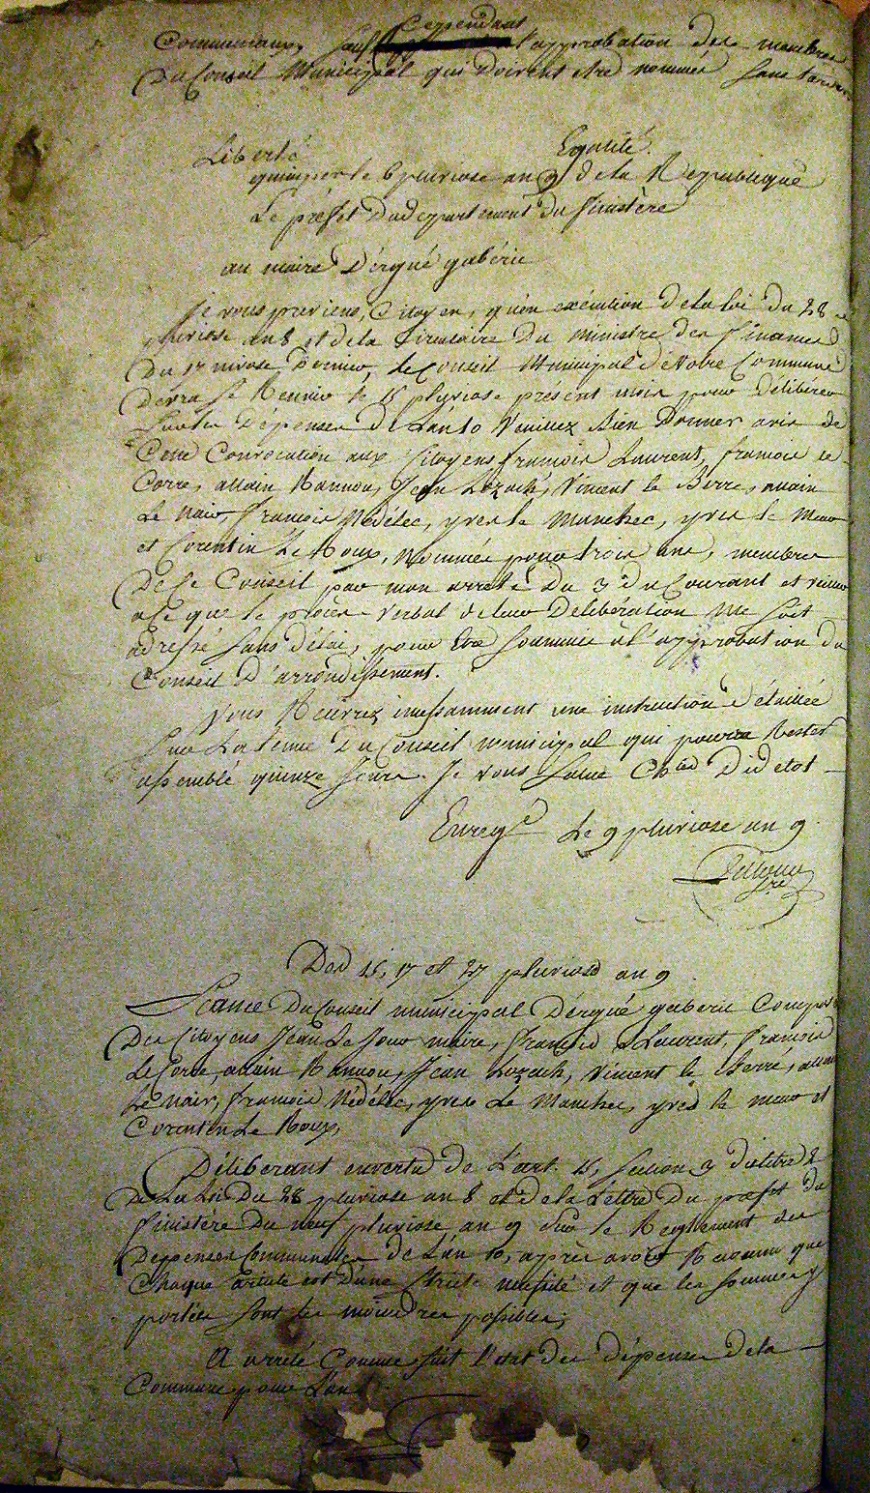 Cependant
Communaux, sauf l'approbation des membres
Du Conseil Municipal qui doivent etre nommés sans
Liberté Egalité.
quimper le 6 pluviose an 9 de la Republique
Le préfet Du departement du finistère
au maire D'ergué gabéric
Je vous previens, Citoyen, qu'en exécution de la loi du 28
pluviose an 8 et de la Circulaire Du ministre des finances
Du 17 nivose Dernier, le Conseil Municipal de votre Commune
Devra se Reunir le 15 pluviose présent mois pour Délibérer
sur les Dépenses de L'an 10 Veuillez Bien Donner avis de
Cette Convocation aux Citoyens francois Laurent, francois le
Corre, allain Rannou, Jean Lozach, Vincent le Berre, allain
Le Nair, francois Nédélec, yves le Manchec, yves le
et Corentin Le Roux, Nommés pour trois ans, membres
De Ce Conseil par mon arreté Du 3 du Courant et
a Ce que le procès-verbal de leur Deliberation me soit
adressé sans délai, pour etre soumise à l'approbation du
Conseil D'arrondissement.
Vous Recevrez incessamment une instruction Détaillée
sur La tenue Du Conseil municipal qui pourra Rester
assemblé quinze jours. Je vous salue Ch Didelot
Enreg Le 9 pluviose an 9.
Des 15, 17 et 27 pluviose an 9
Séance Du Conseil municipal D'ergué gaberic
Des Citoyens Jean Le Jour maire, francois Laurent, francois
Le Corre, allain Rannou, Jean Lozach, Vincent le Berre, allain
Le Nair, francois Nédélec, yves Le Manchec, yves le et
Corentin Le Roux,
Déliberant en vertu de L'art. 15, section 3 du titre 2
De La Loi Du 28 pluviose an 8 et de la Lettre Du préfet du
finistére Du neuf pluviose an 9 sur le Reglement des
Depenses Communales de L'an 10, après avoir Reconnu que
Chaque article est d'une stricte necessité et que les sommes y
portées sont les moindres possibles;
A arreté Comme suit l'etat des dépenses de la
Commune pour L'an